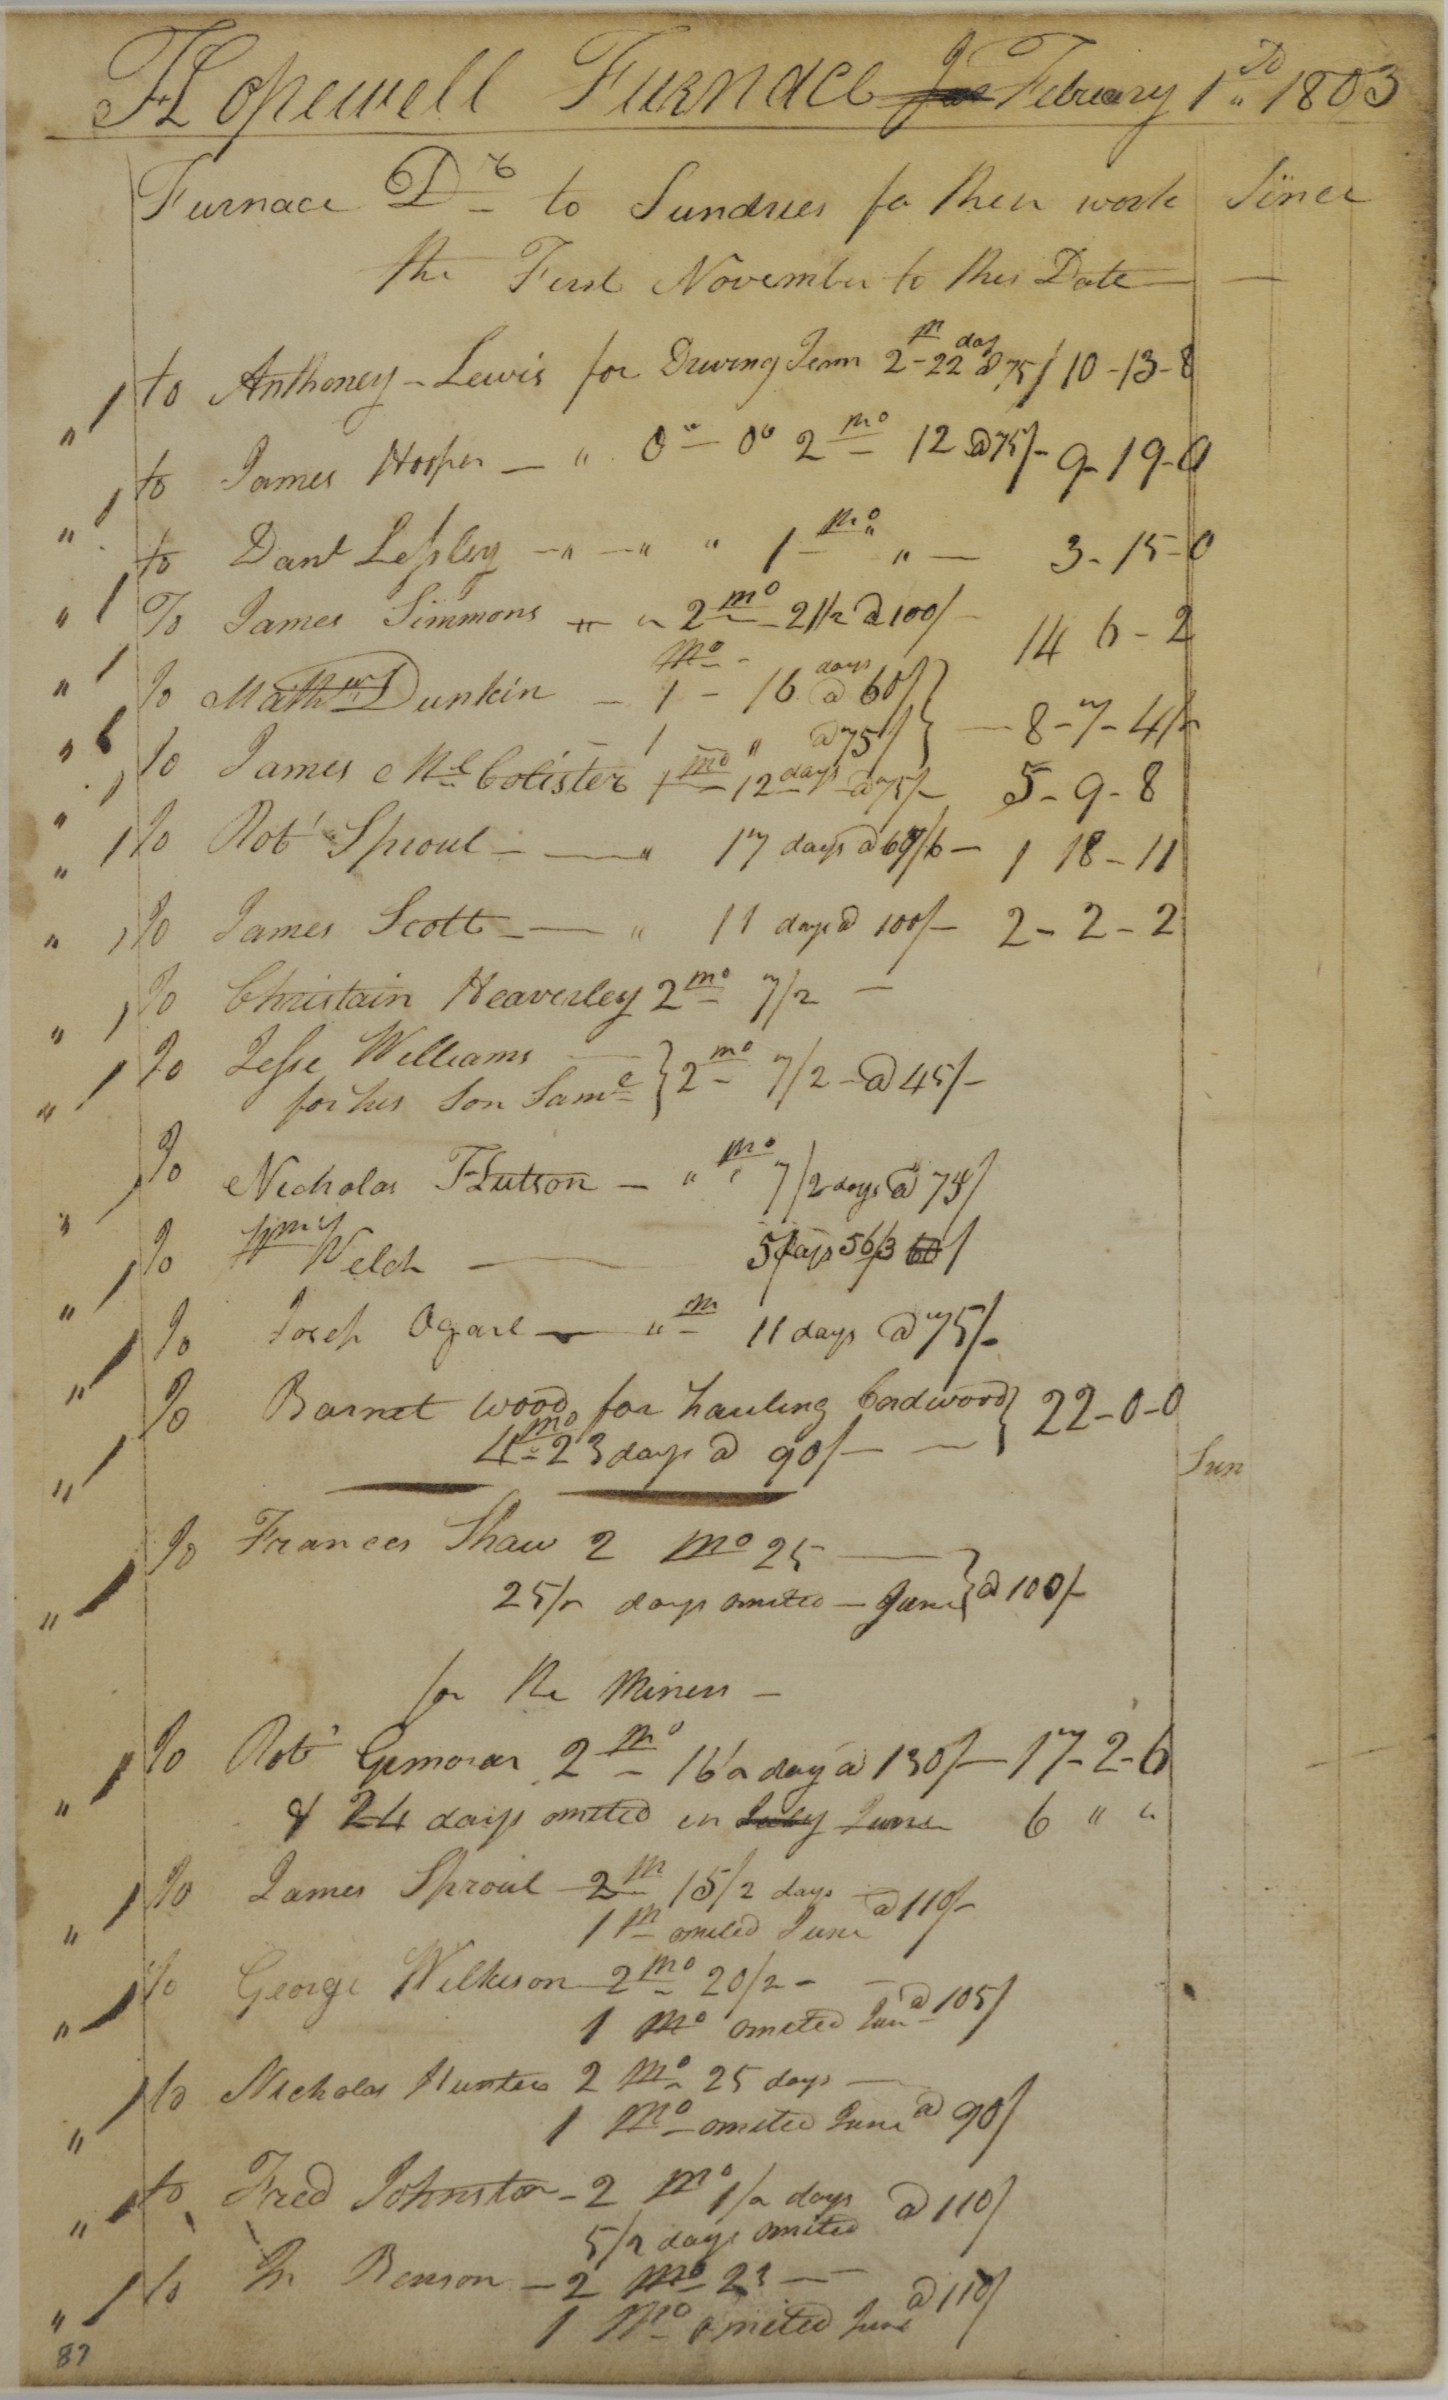 Hopewell Furnace February 1st 1803
Furnace Dr to Sundries for their work Since
the First November to this Date
" 1 to Anthoney Lewis for Driving Team 2m-22 day @ 75/ 10-13-8
" 1 to James Hosper — " Do Do 2 mo 12 @ 75/- 9-19-0
" 1 to Danl Lessley — " — " " 1 mo " " — 3-15-0
" 1 To James Simmons " 2 mo 21/2 @ 100/- 14 6-2
" 1 To Mathw Dunkin — 1 mo - 16 days @ 60/
1 " @ 75/ } — 8-7-4/2
" To James McColister 1 mo 12 days @ 75/- 5-9-8
" 1 To Robt Sproul — " 17 days @ 67/6 — 1 18-11
" 1 To James Scott — " 11 days @ 100/- 2-2-2
" 1 To Christain Heaverley 2 mo 7/2 —
" 1 To Jesse Williams —
for his Son Saml } 2 mo 7/2 - @ 45/-
" 1 To Nicholas Hutson — " mo " 7/2 days @ 75/
" 1 To Welch — 5 days 56/3 60/
" 1 To Joseh Ogard — " m 11 days @ 75/-
" 1 To Barnet wood for hauling Cordwood
4 mo 23 days @ 90/- — } 22-0-0
Sun
" 1 To Frances Shaw 2 mo 25 —
25/2 days omited — June } @ 100/-
for the Miners —
" 1 To Robt Gemorar 2 mo 16/2 day @ 130/- 17-2-6
& 24 days omited in July June 6 " "
" 1 To James Sproul 2 m 15/2 days
1 m omited June @ 110/-
" 1 To George Wilkison 2 mo 20/2 - -
1 mo omited Jun @ 105/
" 1 to Nicholas Hunter 2 mo 25 days —
1 mo omited June @ 90/
" 1 to Fred Johnston - 2 mo 1/2 days
5/2 days omited @ 110/
" 1 to Benson - 2 mo 23 —
1 mo omited June @ 110/
87